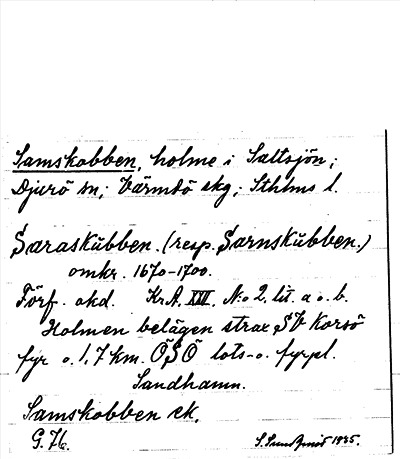 Samskobben, holme i Saltsjön;
Djurö sn; Värmdö skg; Sthlms l.
Saraskŭbben. (resp. Sarnskŭbben.)
omkr. 1670-1700.
Förf. okd. Kr.A. XVI. N:o 2. lit. a o. b.
Holmen belägen strax SV Korsö
fyr o. 1,7 km. ÖSÖ lots- o. fyrpl.
Sandhamn.
Samskobben ek.
G. 76.
1935.